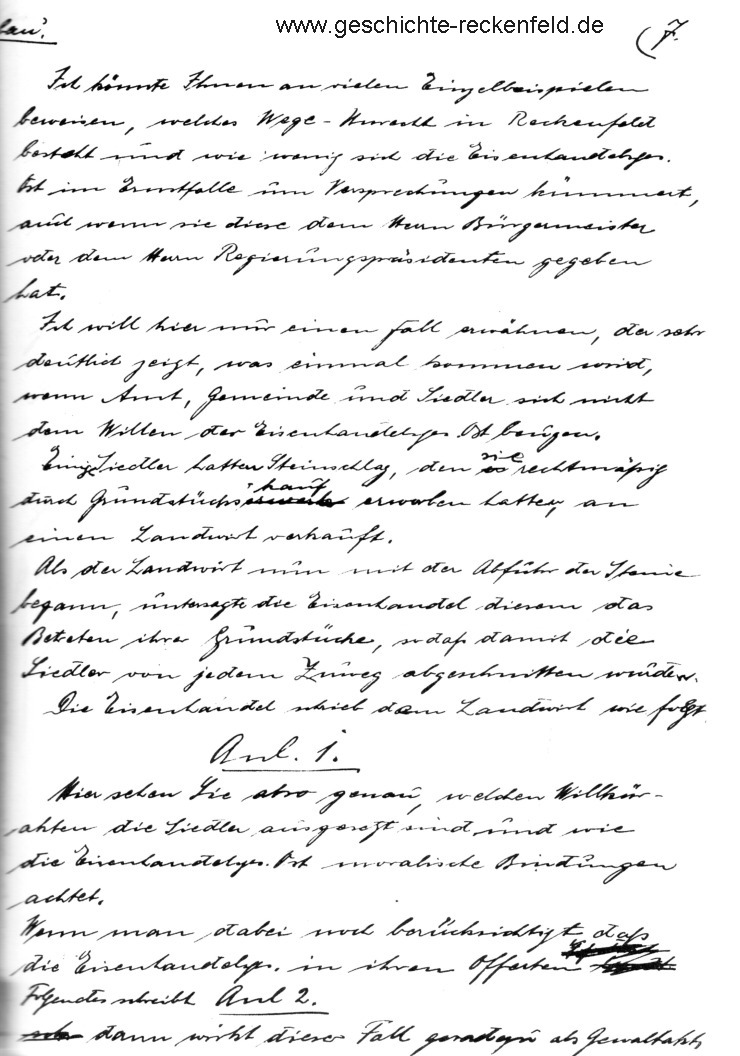 www.geschichte-reckenfeld.de
7.
Ich könnte Ihnen an vielen Einzelbeispielen
beweisen, welches Wege-Unrecht in Reckenfeld
besteht und wie wenig sich die Eisenhandelsges.
Ost im Ernstfalle um Versprechungen kümmert,
auch wenn sie diese dem Herrn Bürgermeister
oder dem Herrn Regierungspräsidenten gegeben
hat.
Ich will hier nur einen Fall erwähnen, der sehr
deutlich zeigt, was einmal kommen wird,
wenn Amt, Gemeinde und Siedler sich nicht
dem Willen der Eisenhandelsges Ost beugen.
Einige Siedler hatten Steinschlag, den sie rechtmäßig
durch Grundstückskauf erworben hatten, an
einen Landwirt verkauft.
Als der Landwirt nun mit der Abfuhr der Steine
begann, untersagte die Eisenhandel diesem das
Betreten ihrer Grundstücke, sodaß damit die
Siedler von jedem Zuweg abgeschnitten wurden.
Die Eisenhandel schrieb dem Landwirt wie folgt
Anl. 1.
Hier sehen Sie also genau, welchen Willkür-
akten die Siedler ausgesetzt sind und wie
die Eisenhandelsges. Ost moralische Bindungen
achtet.
Wenn man dabei noch berücksichtigt, daß
die Eisenhandelsges. in ihren Offerten
Folgendes schreibt Anl 2.
dann wirkt dieser Fall geradezu als Gewaltakt